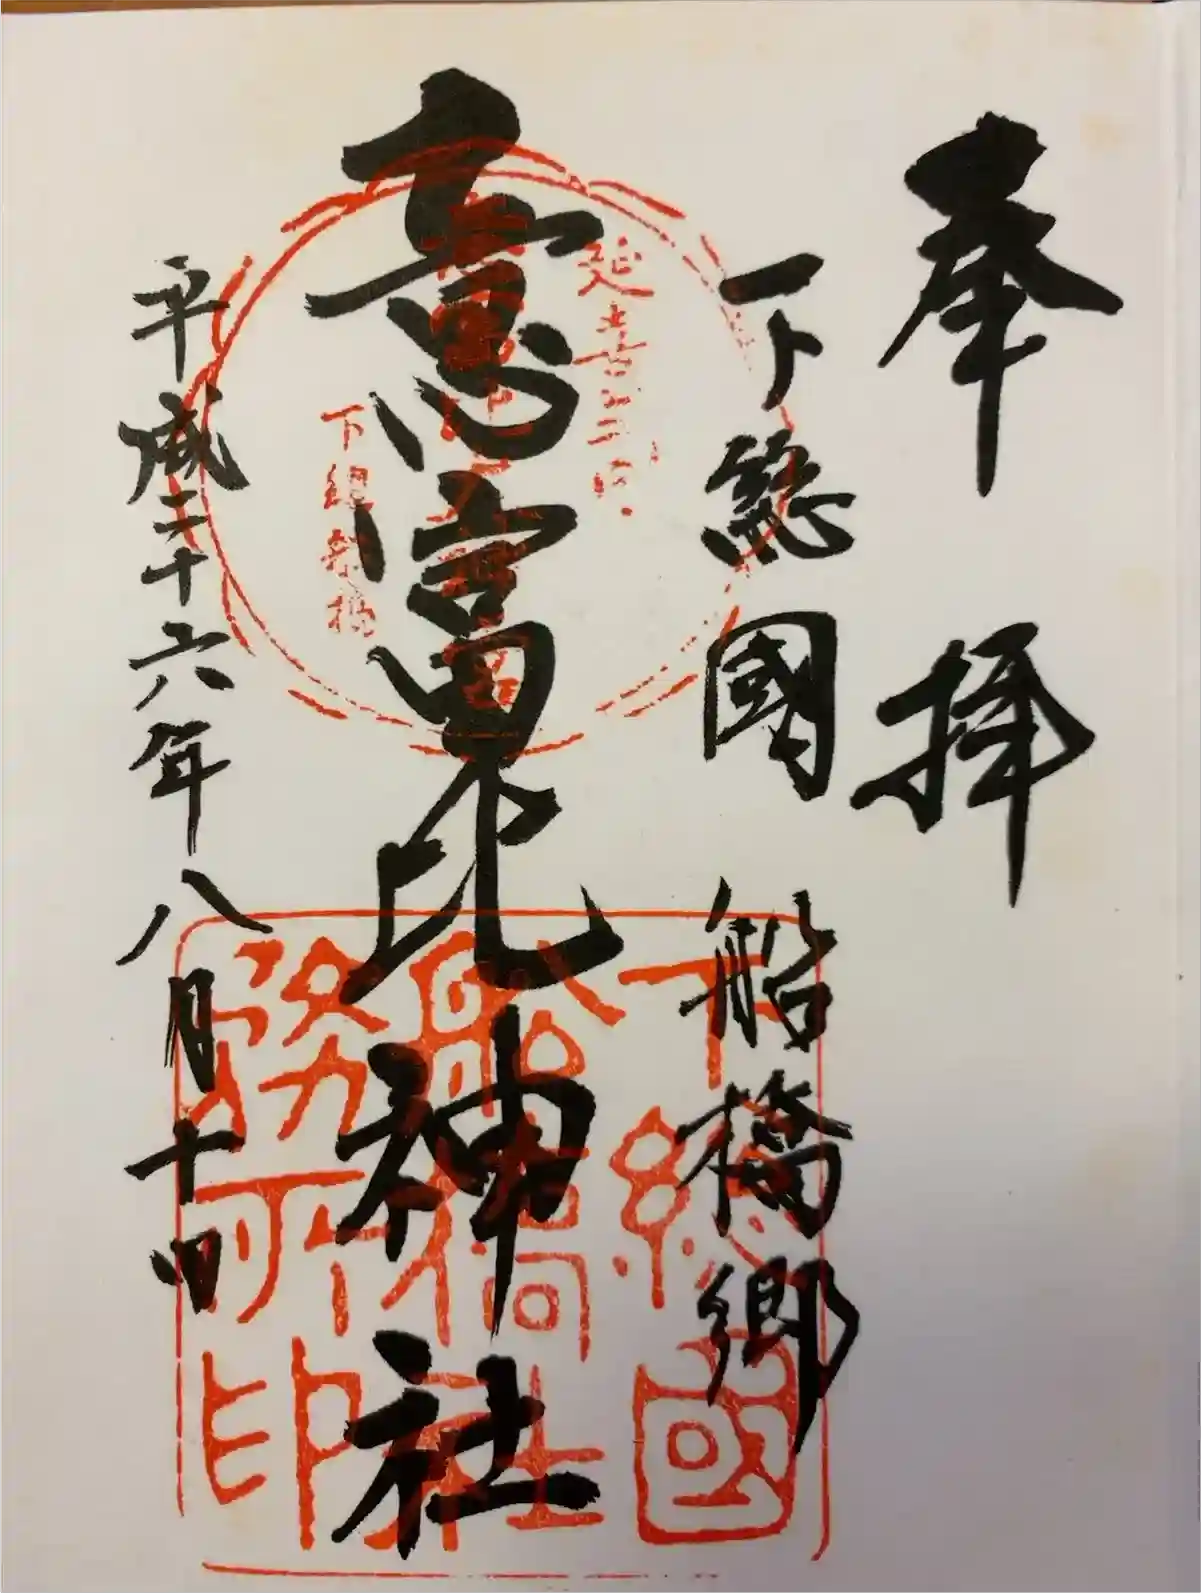 奉拝
下総國船橋郷
意富比神社
平成二十六年八月十四
延喜式内
下総船橋
下総國
船橋社
務所印